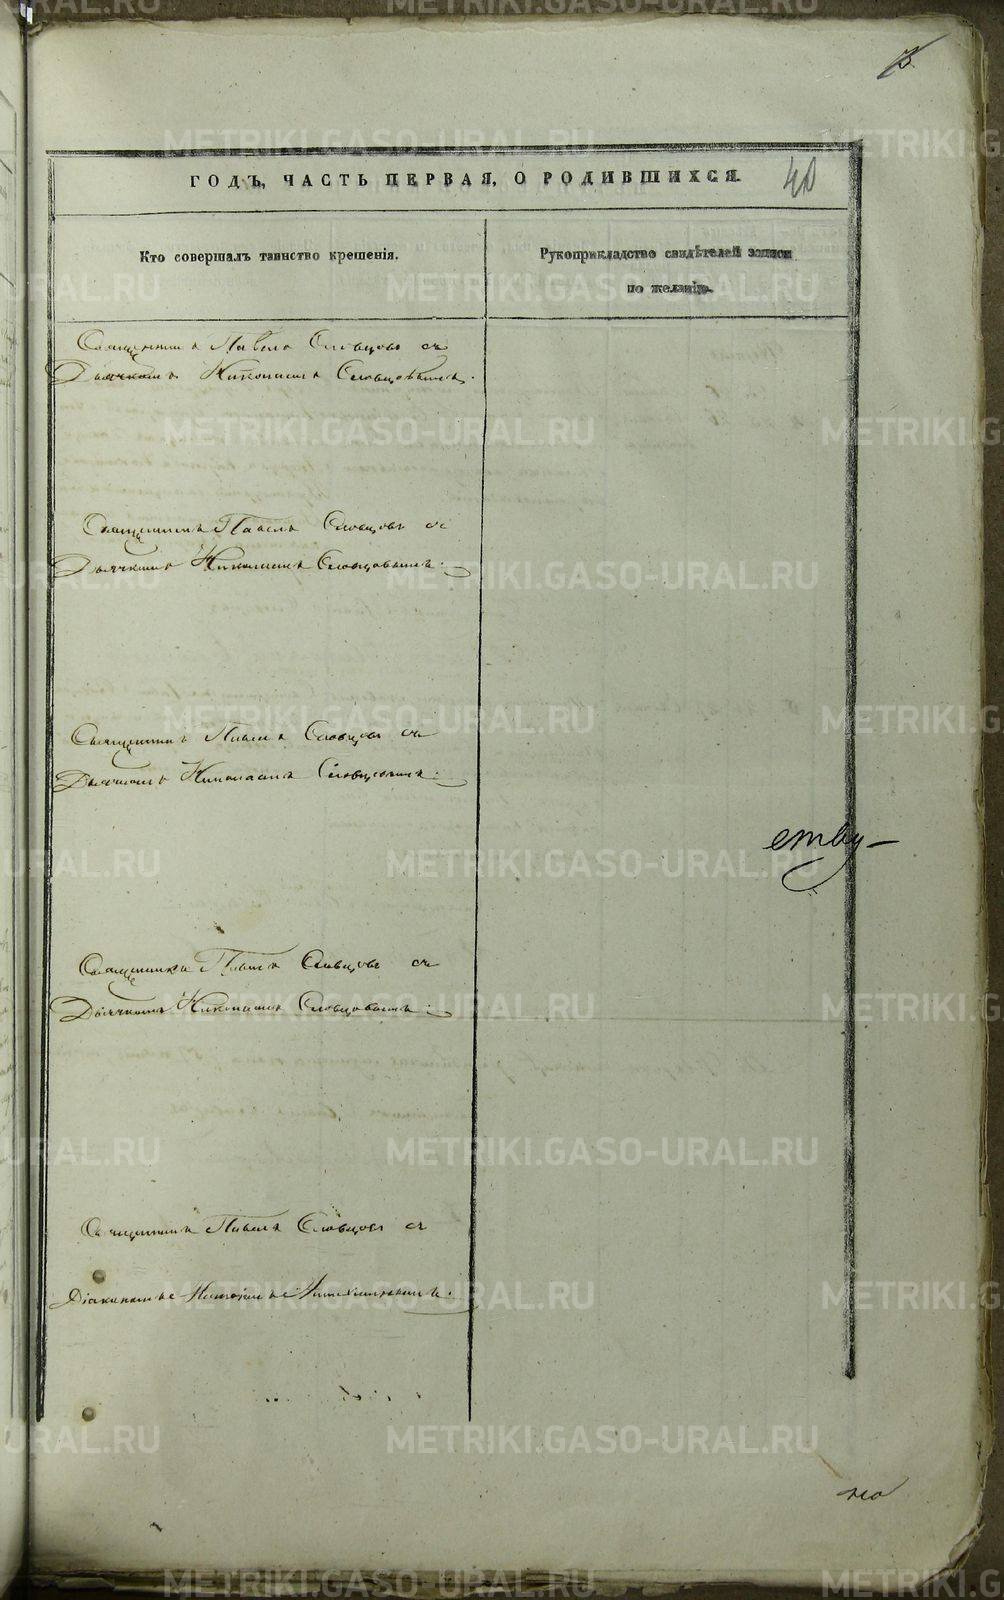 40
ГОДЪ, ЧАСТЬ ПЕРВАЯ, О РОДИВШИХСЯ.
Кто совершалъ таинство крещенія.
Рукоприкладство свидѣтелей записи
по желанію.
Священникъ Павелъ Словцовъ съ
Дьячкомъ Николаемъ Словцовымъ.
Священникъ Павелъ Словцовъ съ
Дьячкомъ Николаемъ Словцовымъ.
Священникъ Павелъ Словцовъ съ
Дьячкомъ Николаемъ Словцовымъ.
ству
Священникъ Павелъ Словцовъ съ
Дьячкомъ Николаемъ Словцовымъ.
Священникъ Павелъ Словцовъ съ
Діакономъ
METRIKI.GASO-URAL.RU